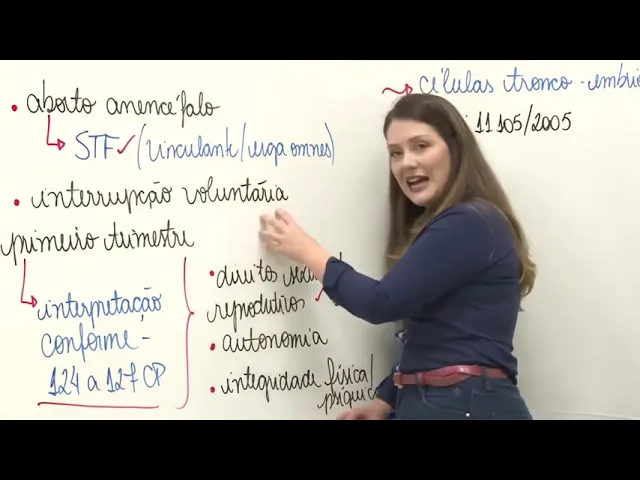 • aborto anencéfalo
STF ✓ (vinculante/erga omnes)
• interrupção voluntária
primeiro trimestre
interpretação
conforme -
124 a 127 CP
• direitos
reprodutivos
• autonomia
• integridade física/
células tronco -
11 105/2005